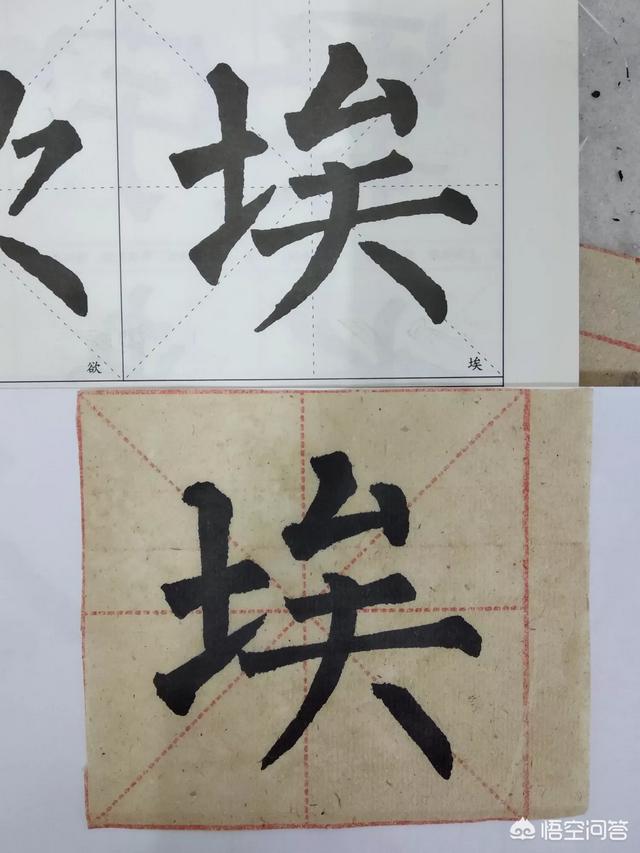 埃
欲 埃
埃
悟空问答